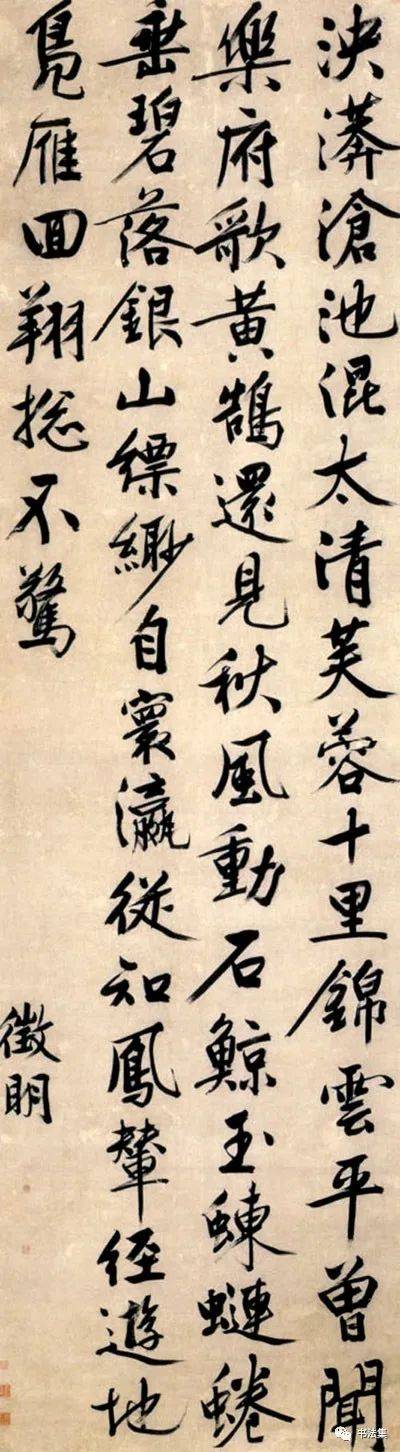 泱漭滄池混太清芙蓉十里錦雲平曾聞
樂府歌黄鵠還見秋風動石鯨玉蝀蜷
垂碧落銀山縹緲自寰瀛從知鳳輦經遊地
鳧雁回翔捴不驚
徵明
书法集